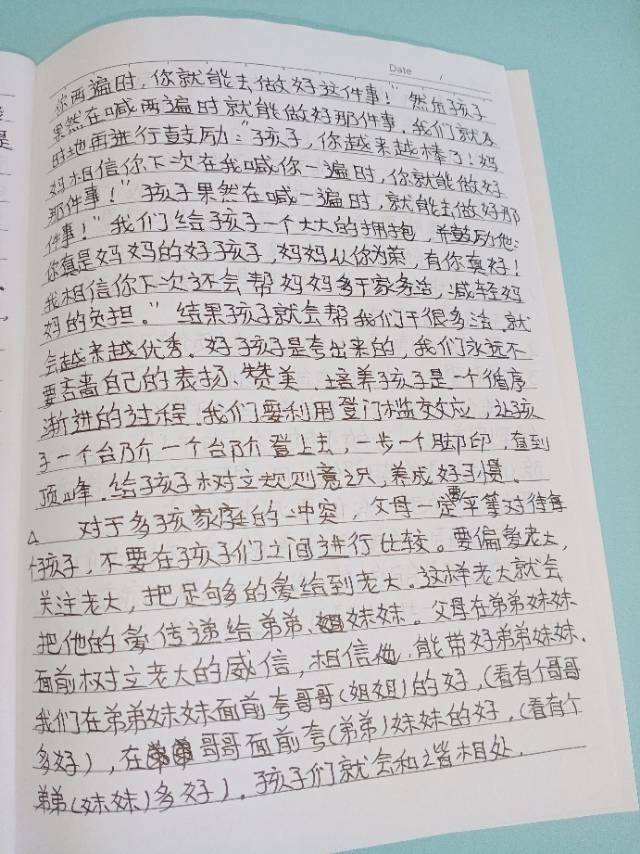 Date /
你两遍时，你就能去做好这件事！"然后孩子
果然在喊两遍时就能做好那件事，我们就及
时地再进行鼓励："孩子，你越来越棒了！妈
妈相信你下次在我喊你一遍时，你就能做好
那件事！"孩子果然在喊一遍时，就能去做好那
件事！"我们给孩子一个大大的拥抱，并鼓励他：
你真是妈妈的好孩子，妈妈以你为荣，有你真好！
我相信你下次还会帮妈妈多干家务活，减轻妈
妈的负担。"结果孩子就会帮我们干很多活，就
会越来越优秀。好孩子是夸出来的，我们永远不
要吝啬自己的表扬、赞美，培养孩子是一个循序
渐进的过程，我们要利用登门槛效应，让孩
子一个台阶一个台阶登上去，一步一个脚印，直到
顶峰，给孩子树立规则意识，养成好习惯。
△ 对于多孩家庭的冲突，父母一定要平等对待每
个孩子，不要在孩子们之间进行比较。要偏爱老大，
关注老大，把足够的爱给到老大。这样老大就会
把他的爱传递给弟弟、妹妹。父母在弟弟妹妹
面前树立老大的威信，相信他，能带好弟弟妹妹.
我们在弟弟妹妹面前夸哥哥(姐姐)的好，(看有个哥哥
多好)，在哥哥面前夸(弟弟)妹妹的好，(看有个
弟弟(妹妹)多好)。孩子们就会和谐相处.
是